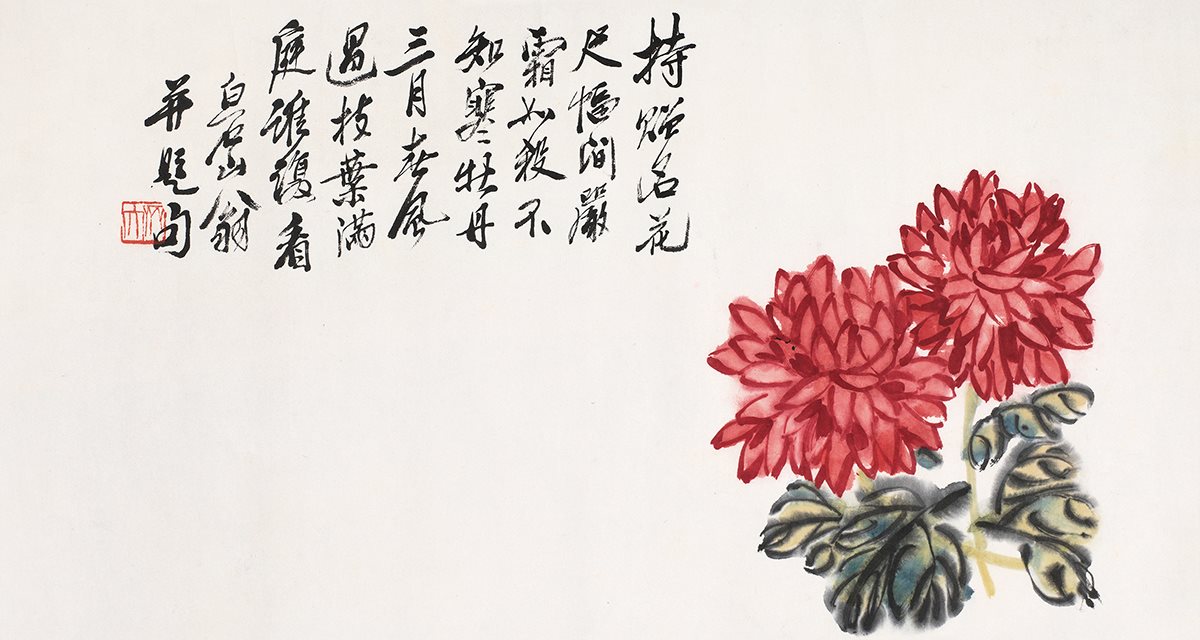 持贈名花
尺幅間嚴
霜如殺不
知寒牡丹
三月春風
過枝葉滿
庭誰復看
白石山翁
并題句